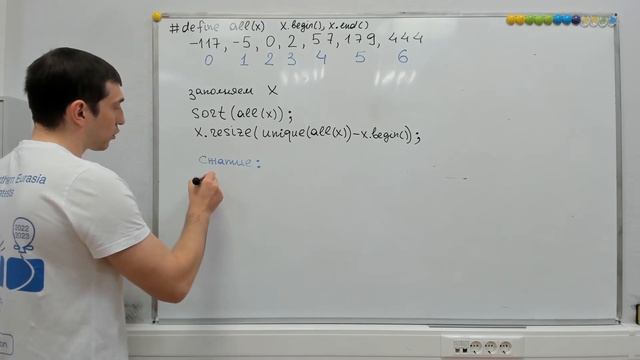 #define all(x) x.begin(), x.end()
-117, -5, 0, 2, 57, 179, 444
0 1 2 3 4 5 6
заполняем X
sort(all(x));
x.resize(unique(all(x))-x.begin());
сжатие:
Eurasia
2022
2023